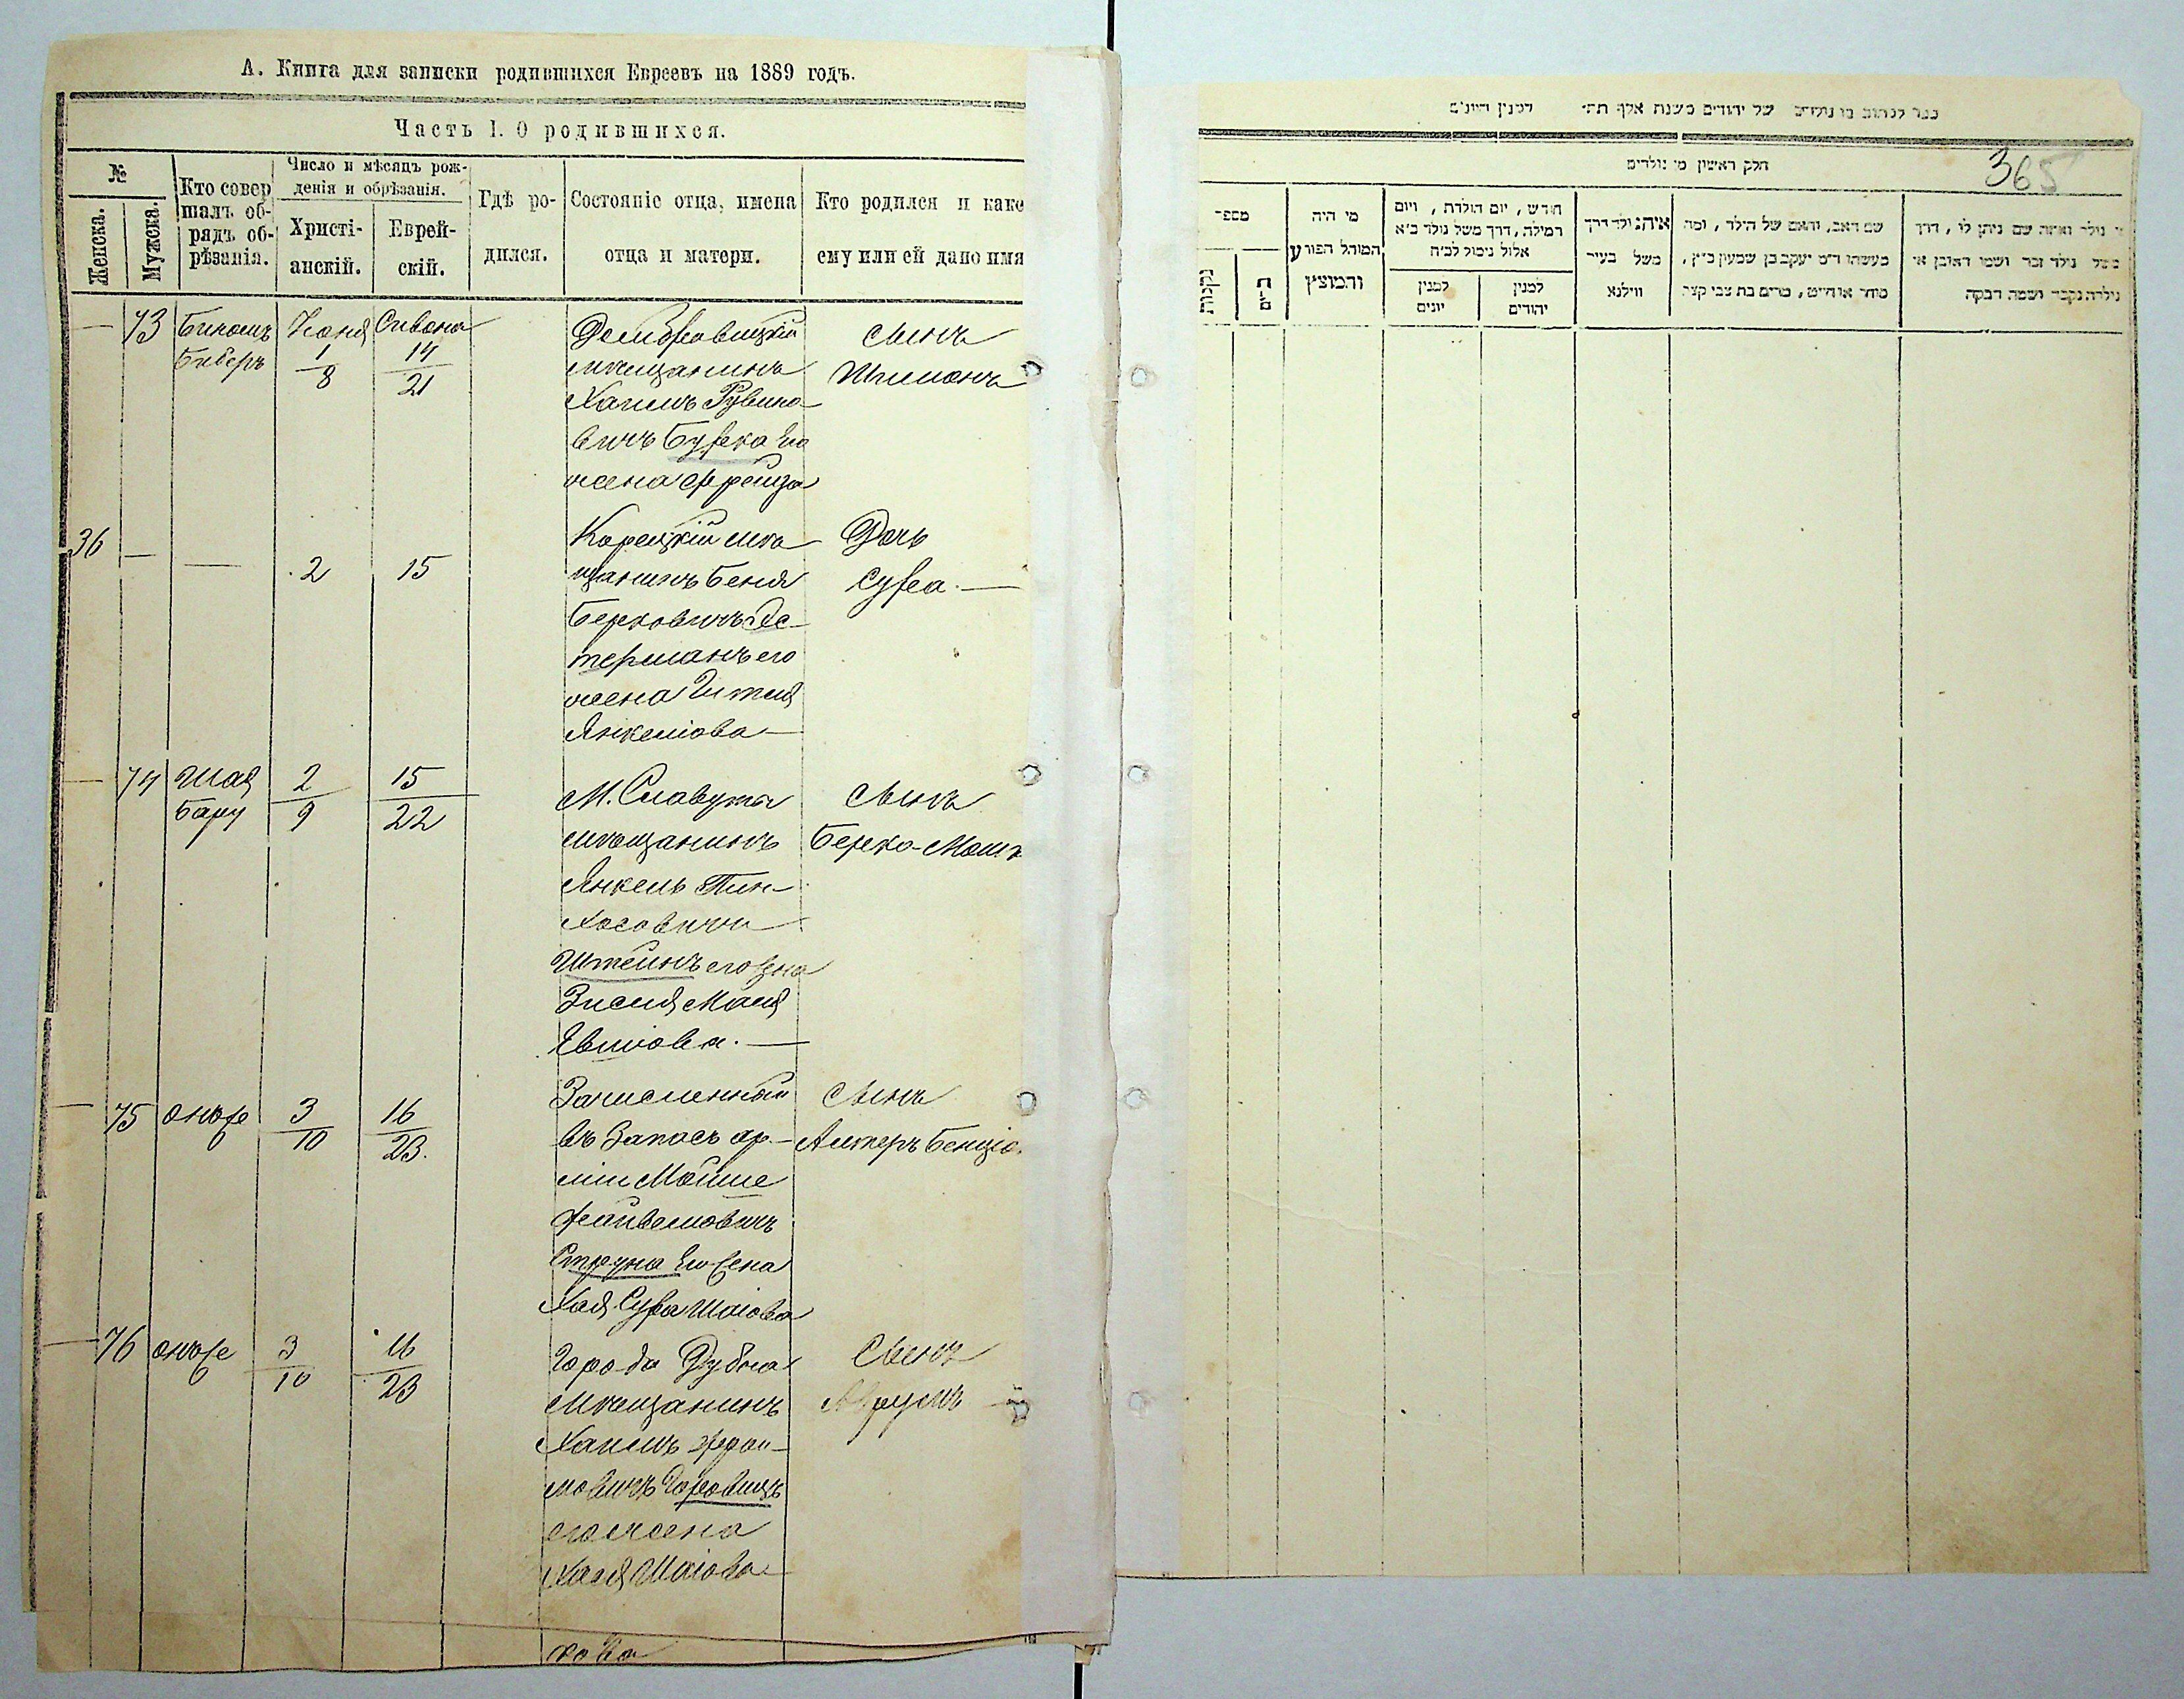 А. Книга для записки родившихся Евреевъ на 1889 годъ.
Часть I. О родившихся.
№
Женска.
Мужска.
Кто совер
шалъ об-
рядъ об-
рѣзанія.
Число и мѣсяцъ рож-
денія и обрѣзанія.
Христі-
анскій.
Еврей-
скій.
Гдѣ ро-
дился.
Состояніе отца, имена
отца и матери.
Кто родился и како
ему или ей дано имя
— 73
Биберъ
Іюня
1
8
Сивона
14
21
Домбровицкій
мѣщанинъ
Хаимъ Рувино-
вичъ Бурка Его
жена Фрейда
сынъ
Шимонъ
36 — —
2
15
Корецкій мѣ
щанинъ Беня
Берковичъ Ос-
терманъ его
жена Гитля
Янкеліова —
Дочь
Сура. —
— 74
Шая
Бару
2
9
15
22
М. Славута
мѣщанинъ
Янкель Пин-
хосовичи
Штейнъ его жена
Зисля Маля
Евшіова. —
Сынъ
Берко-Мошк
— 75
онже
3
10
16
23.
Зачисленный
въ Запасъ ар-
міи Мойше
Файвеловичъ
Струна Его жена
Хая Сура Шаіова
Сынъ
Алтеръ Бенціо.
— 76
онже
3
10
16
23
Города Дубна
Мѣщанинъ
Хаимъ
мовичъ Горовицъ
его жена
Хася Шаіова
Сынъ
Аврумъ —
кова
ספר לכתוב בו נולדים של יהודים בשנת אלף תת׳ למנין היונים
365
חלק ראשון מי נולדים
מספר
נקבות
זכרים
מי היה
המוהל הפורע
והמוצץ
חודש, יום הולדת, ויום
המילה, דרך משל נולד כ״א
אלול נימול לכ״ח
למנין
יונים
למנין
יהודים
איה נולד דרך
משל בעיר
ווילנא
שם האב, והאם של הילד, ומה
מעשהו ד״מ יעקב בן שמעון כ״ץ,
סוחר או חייט, מרים בת צבי קצב
מי נולד ואיזה שם ניתן לו, דרך
משל נולד זכר ושמו ראובן או
נולדה נקבה ושמה רבקה